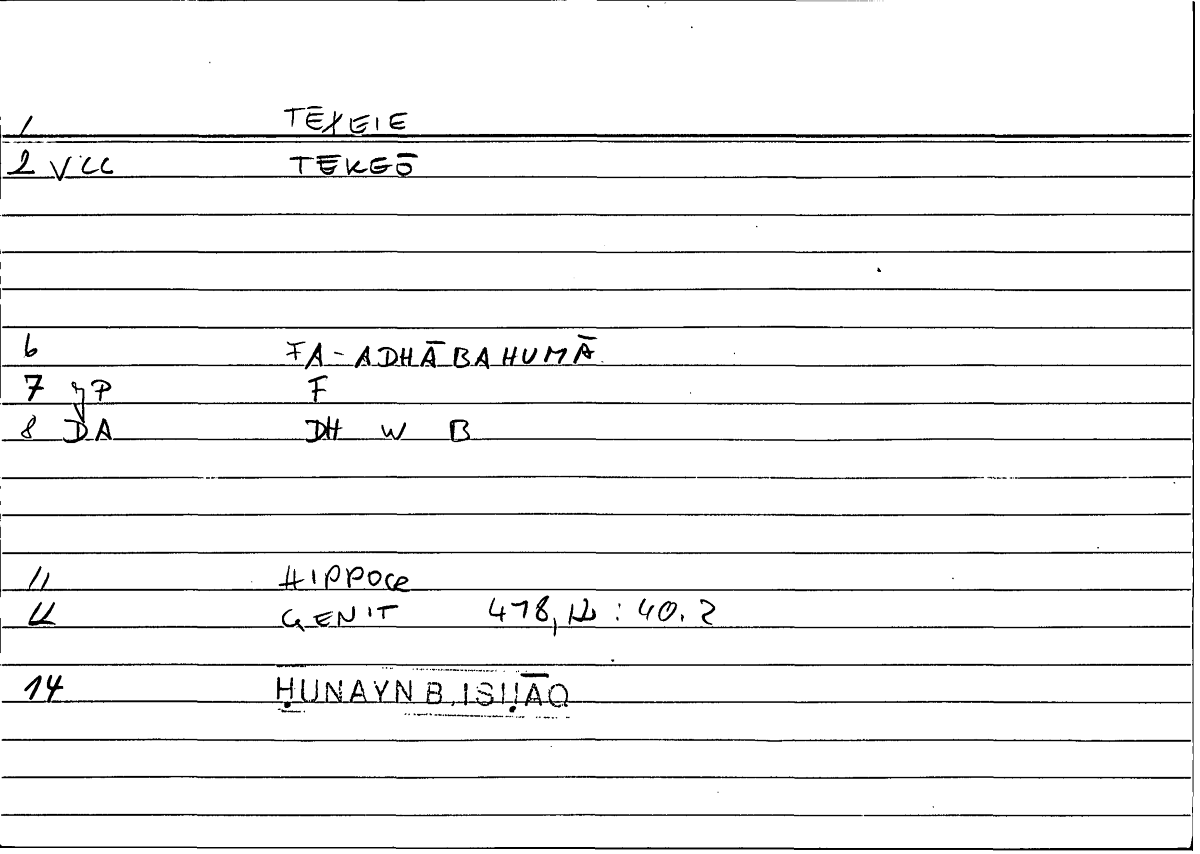 1 TĒKEIE
2 VCC TĒKEŌ
6 FA-ADHĀBAHUMĀ
7 P F
8 DA DH W B
11 HIPPOCR
12 GENIT 478,12 : 40.2
14 ḤUNAYN B. ISḤĀQ